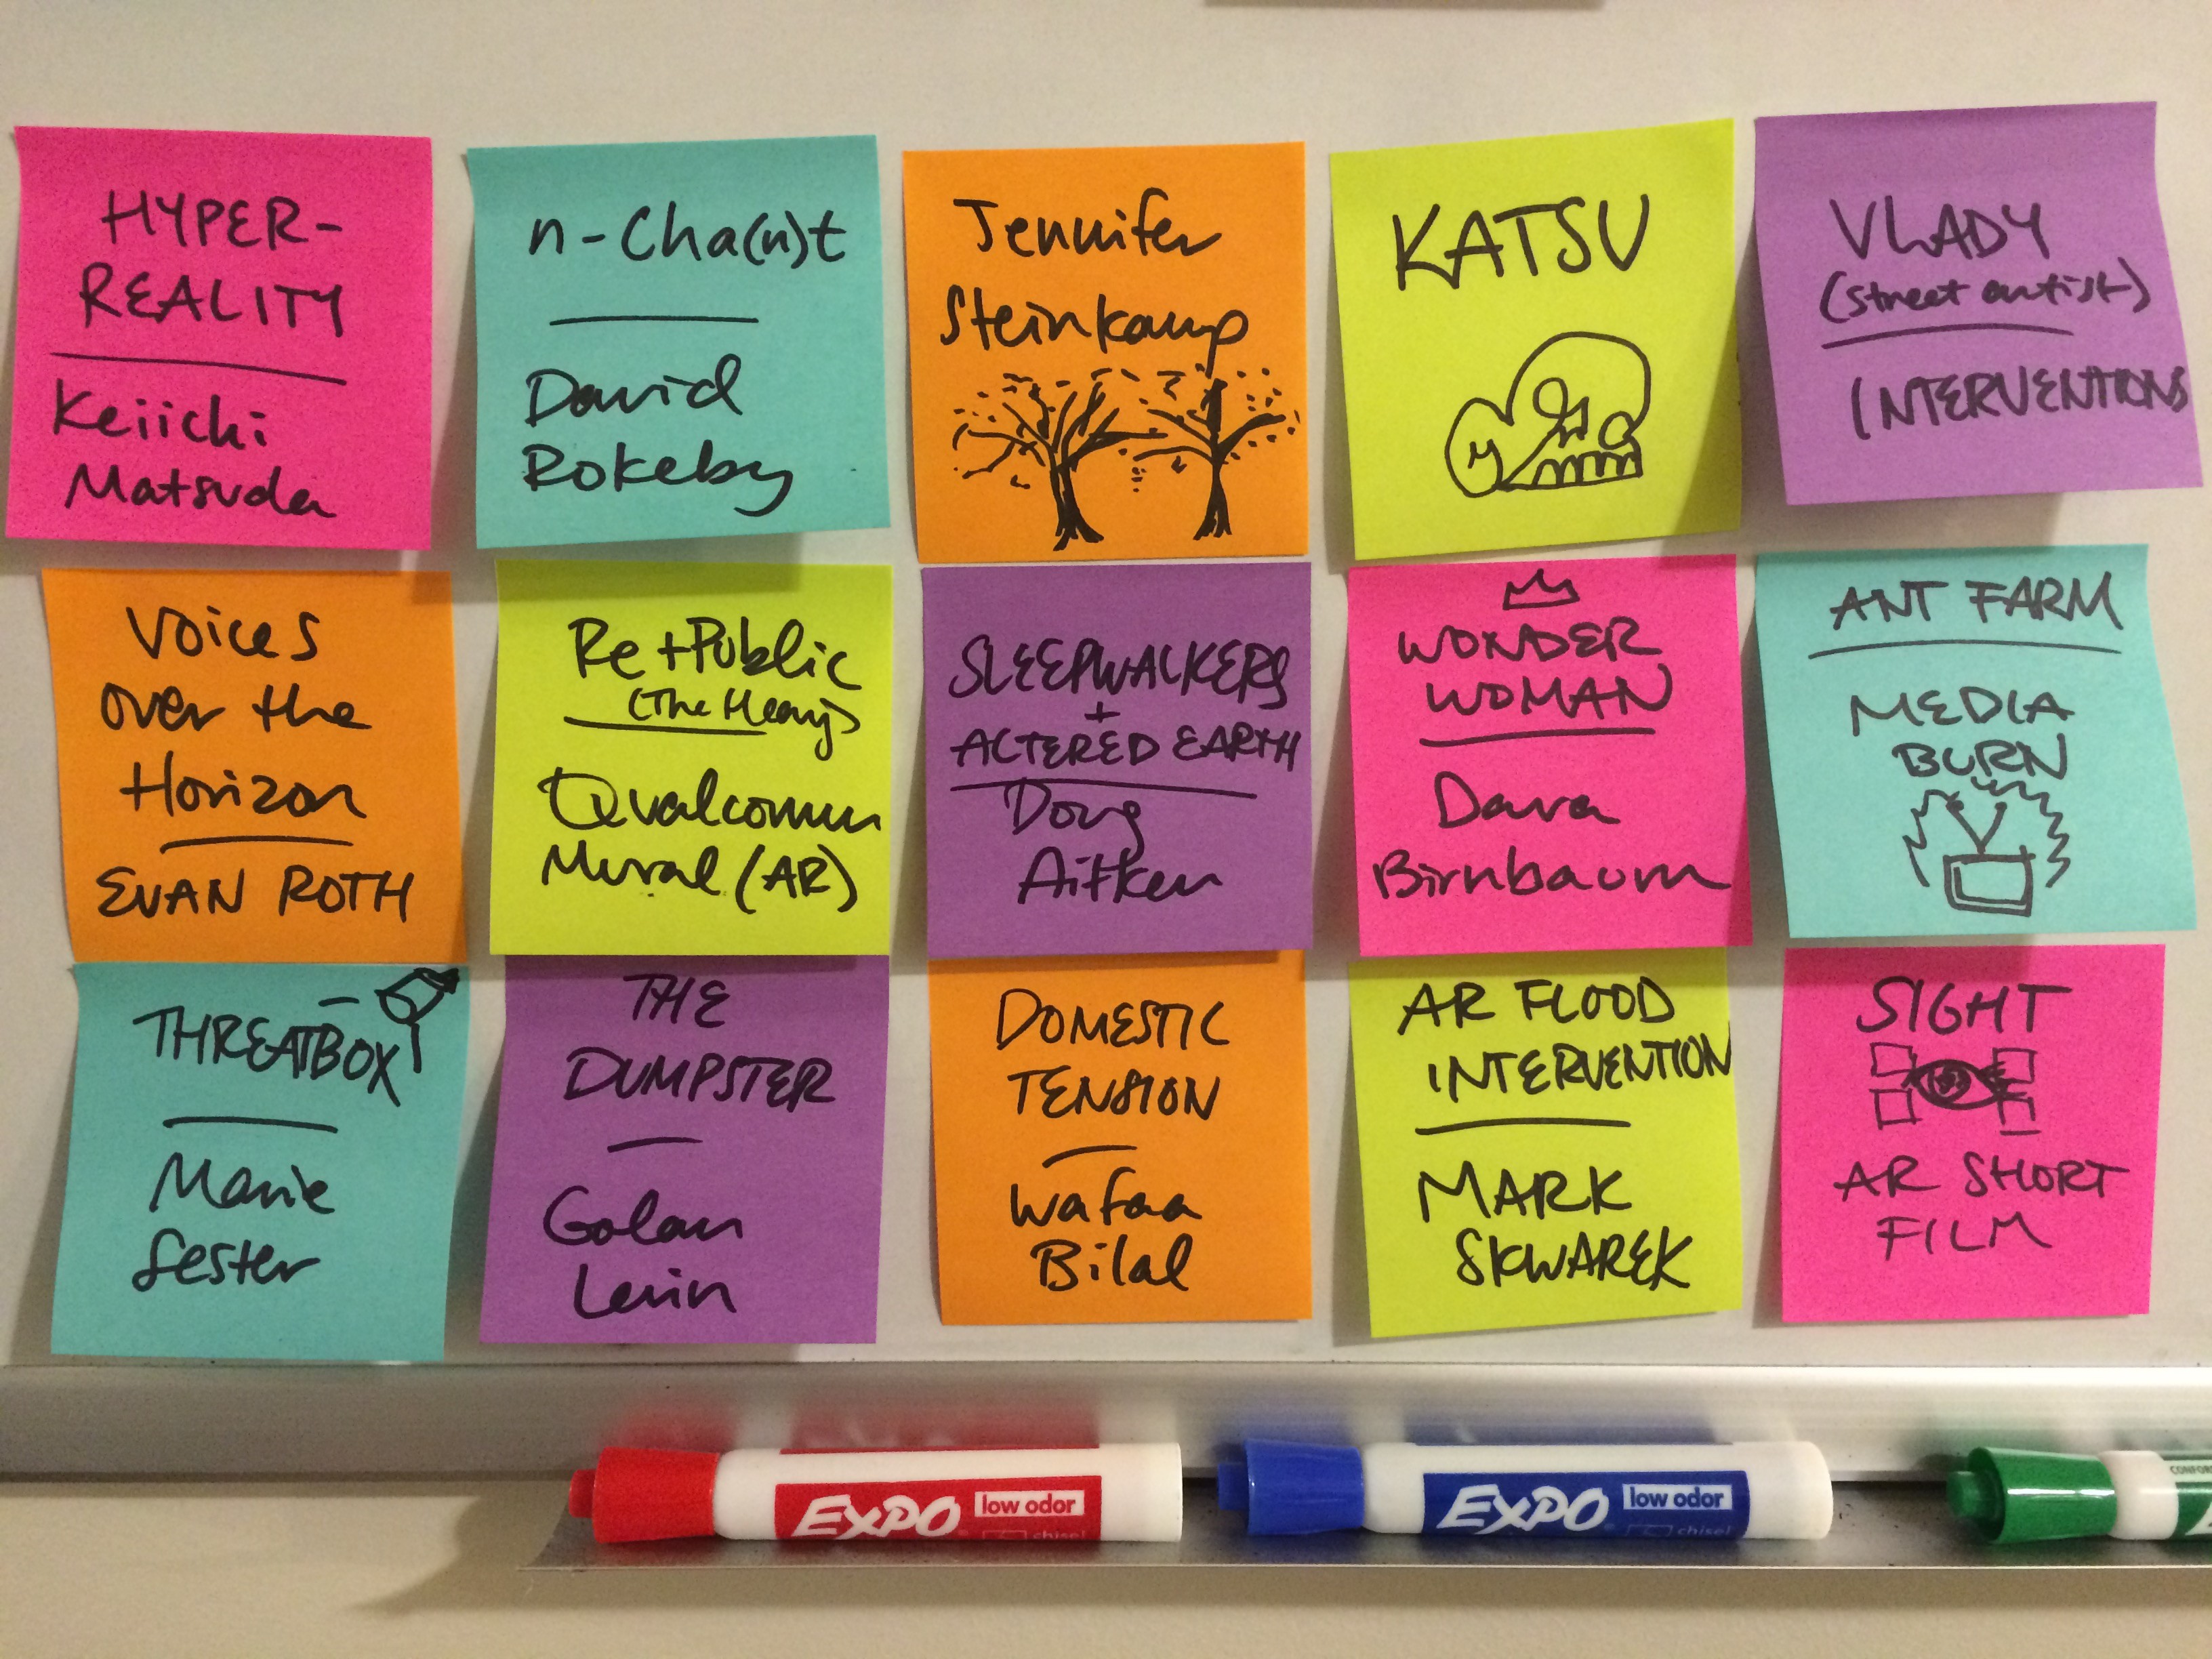 HYPER-
REALITY
Keiichi
Matsuda
n-Cha(n)t
David
Rokeby
Jennifer
Steinkamp
KATSU
VLADY
(street artist)
INTERVENTIONS
Voices
over the
Horizon
EVAN ROTH
Re+Public
(The Heavy)
Qualcomm
Mural (AR)
SLEEPWALKERS
+
ALTERED EARTH
Doug
Aitken
WONDER
WOMAN
Dara
Birnbaum
ANT FARM
MEDIA
BURN
THREATBOX
Marie
Sester
THE
DUMPSTER
Golan
Levin
DOMESTIC
TENSION
Wafaa
Bilal
AR FLOOD
INTERVENTION
MARK
SKWAREK
SIGHT
AR SHORT
FILM
EXPO low odor
chisel
EXPO low odor
chisel